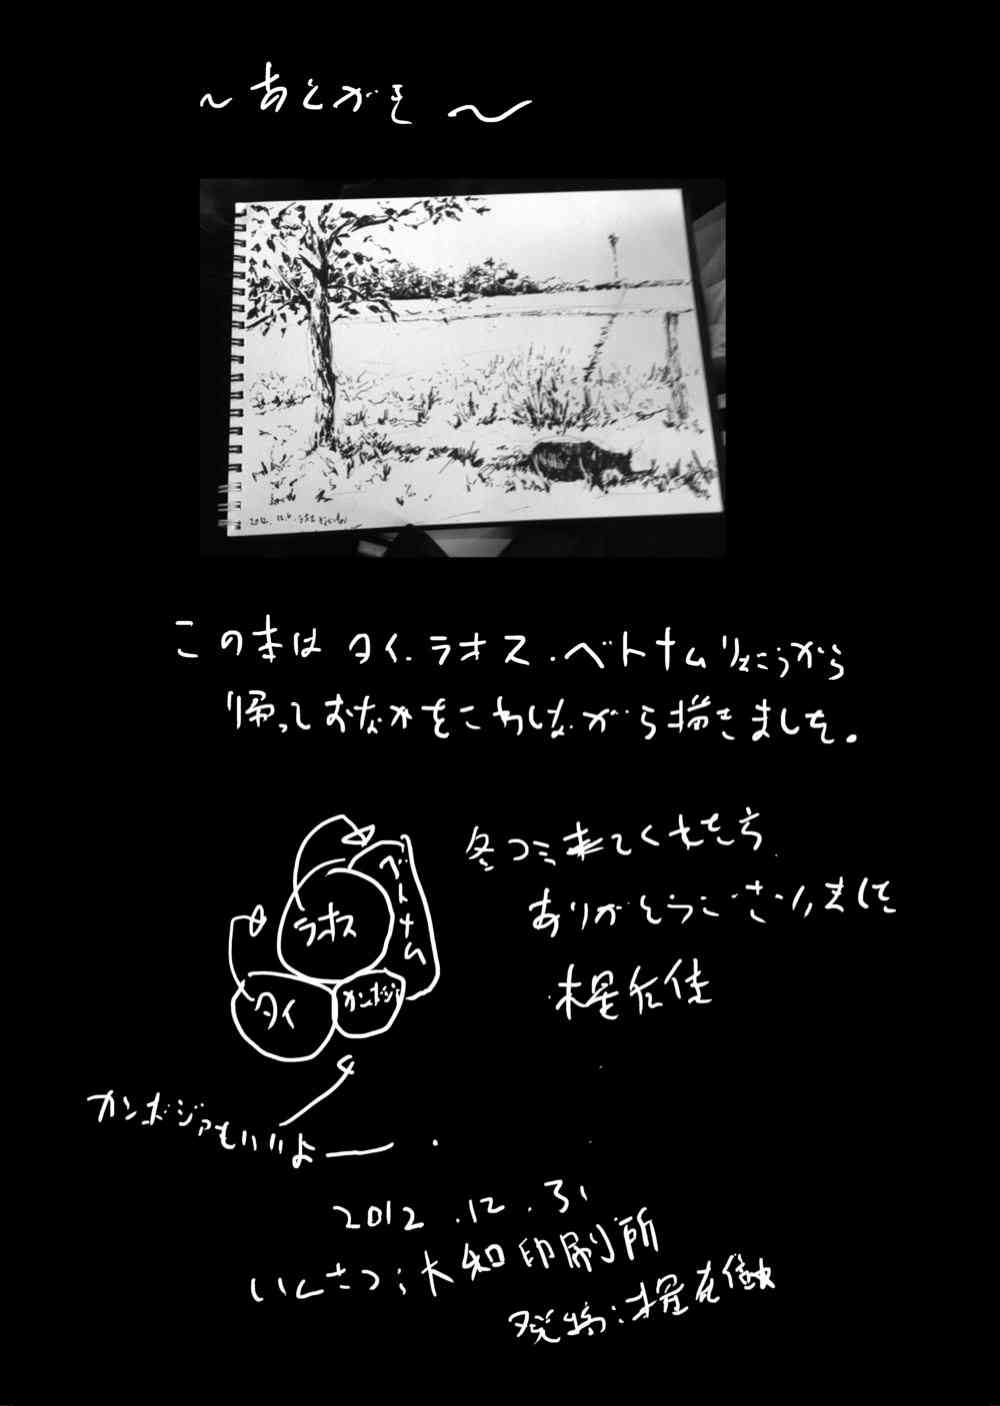 ～あとがき～
この本は タイ.ラオス.ベトナムりょこうから
帰っておなかをこわしながら描きました。
冬コミ来てくれた方
ありがとうございました
ベトナム
ラオス
タイ
カンボジア
カンボジアもいいよー.
2012.12.31
いんさつ:大知印刷所
発行: